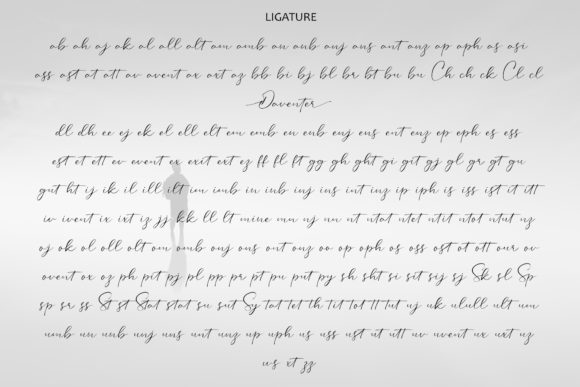 LIGATURE
ab ah aj ak al all alt am amb an anb anj ans ant anz ap aph as asi
ass ast at att av avent ax axt az bb bi bj bl br bt bu bu Ch ch ck Cl cl
Daventer
dl dh ee ej ek el ell elt em emb en enb enj ens ent enz ep eph es ess
est et ett ev event ex exit ext ez ff fl ft gg gh ght gi git gj gl gr gt gu
gut ht ij ik il ill ilt im imb in inb inj ins int inz ip iph is iss ist it itt
iv ivent ix ixt iz jj kk ll lt mine mn nj nn nt ntat ntet ntit ntot ntut nz
oj ok ol oll olt om omb onj ons ont onz oo op oph os oss ost ot ott our ov
ovent ox oz ph pit pj pl pp pr pt pu put py sh sht si sit sij sj Sk sl Sp
sp sr ss St st Stat stat su sut Sy tat tet th tit tot tt tut uj uk ul ull ult um
umb un unb unj uns unt unz up uph us uss ust ut utt uv uvent ux uxt uz
ws xt zz